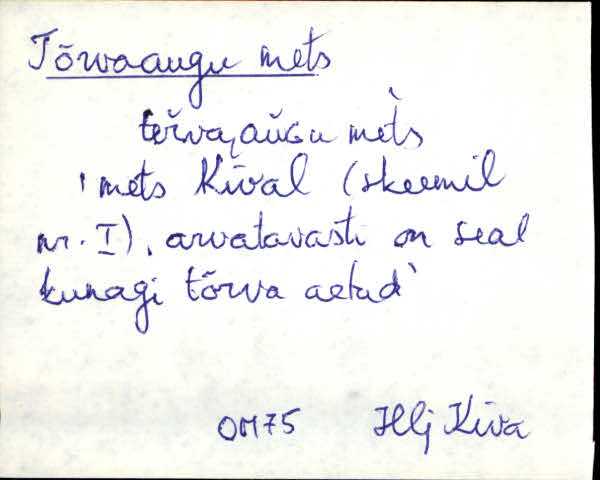 Tõrvaaugu mets
tõrva͵aùGu mèts
'mets Kĩval (skeemil
nr. I), arvatavasti on seal
kunagi tõrva aetud'
OM75 Hlj Kiva